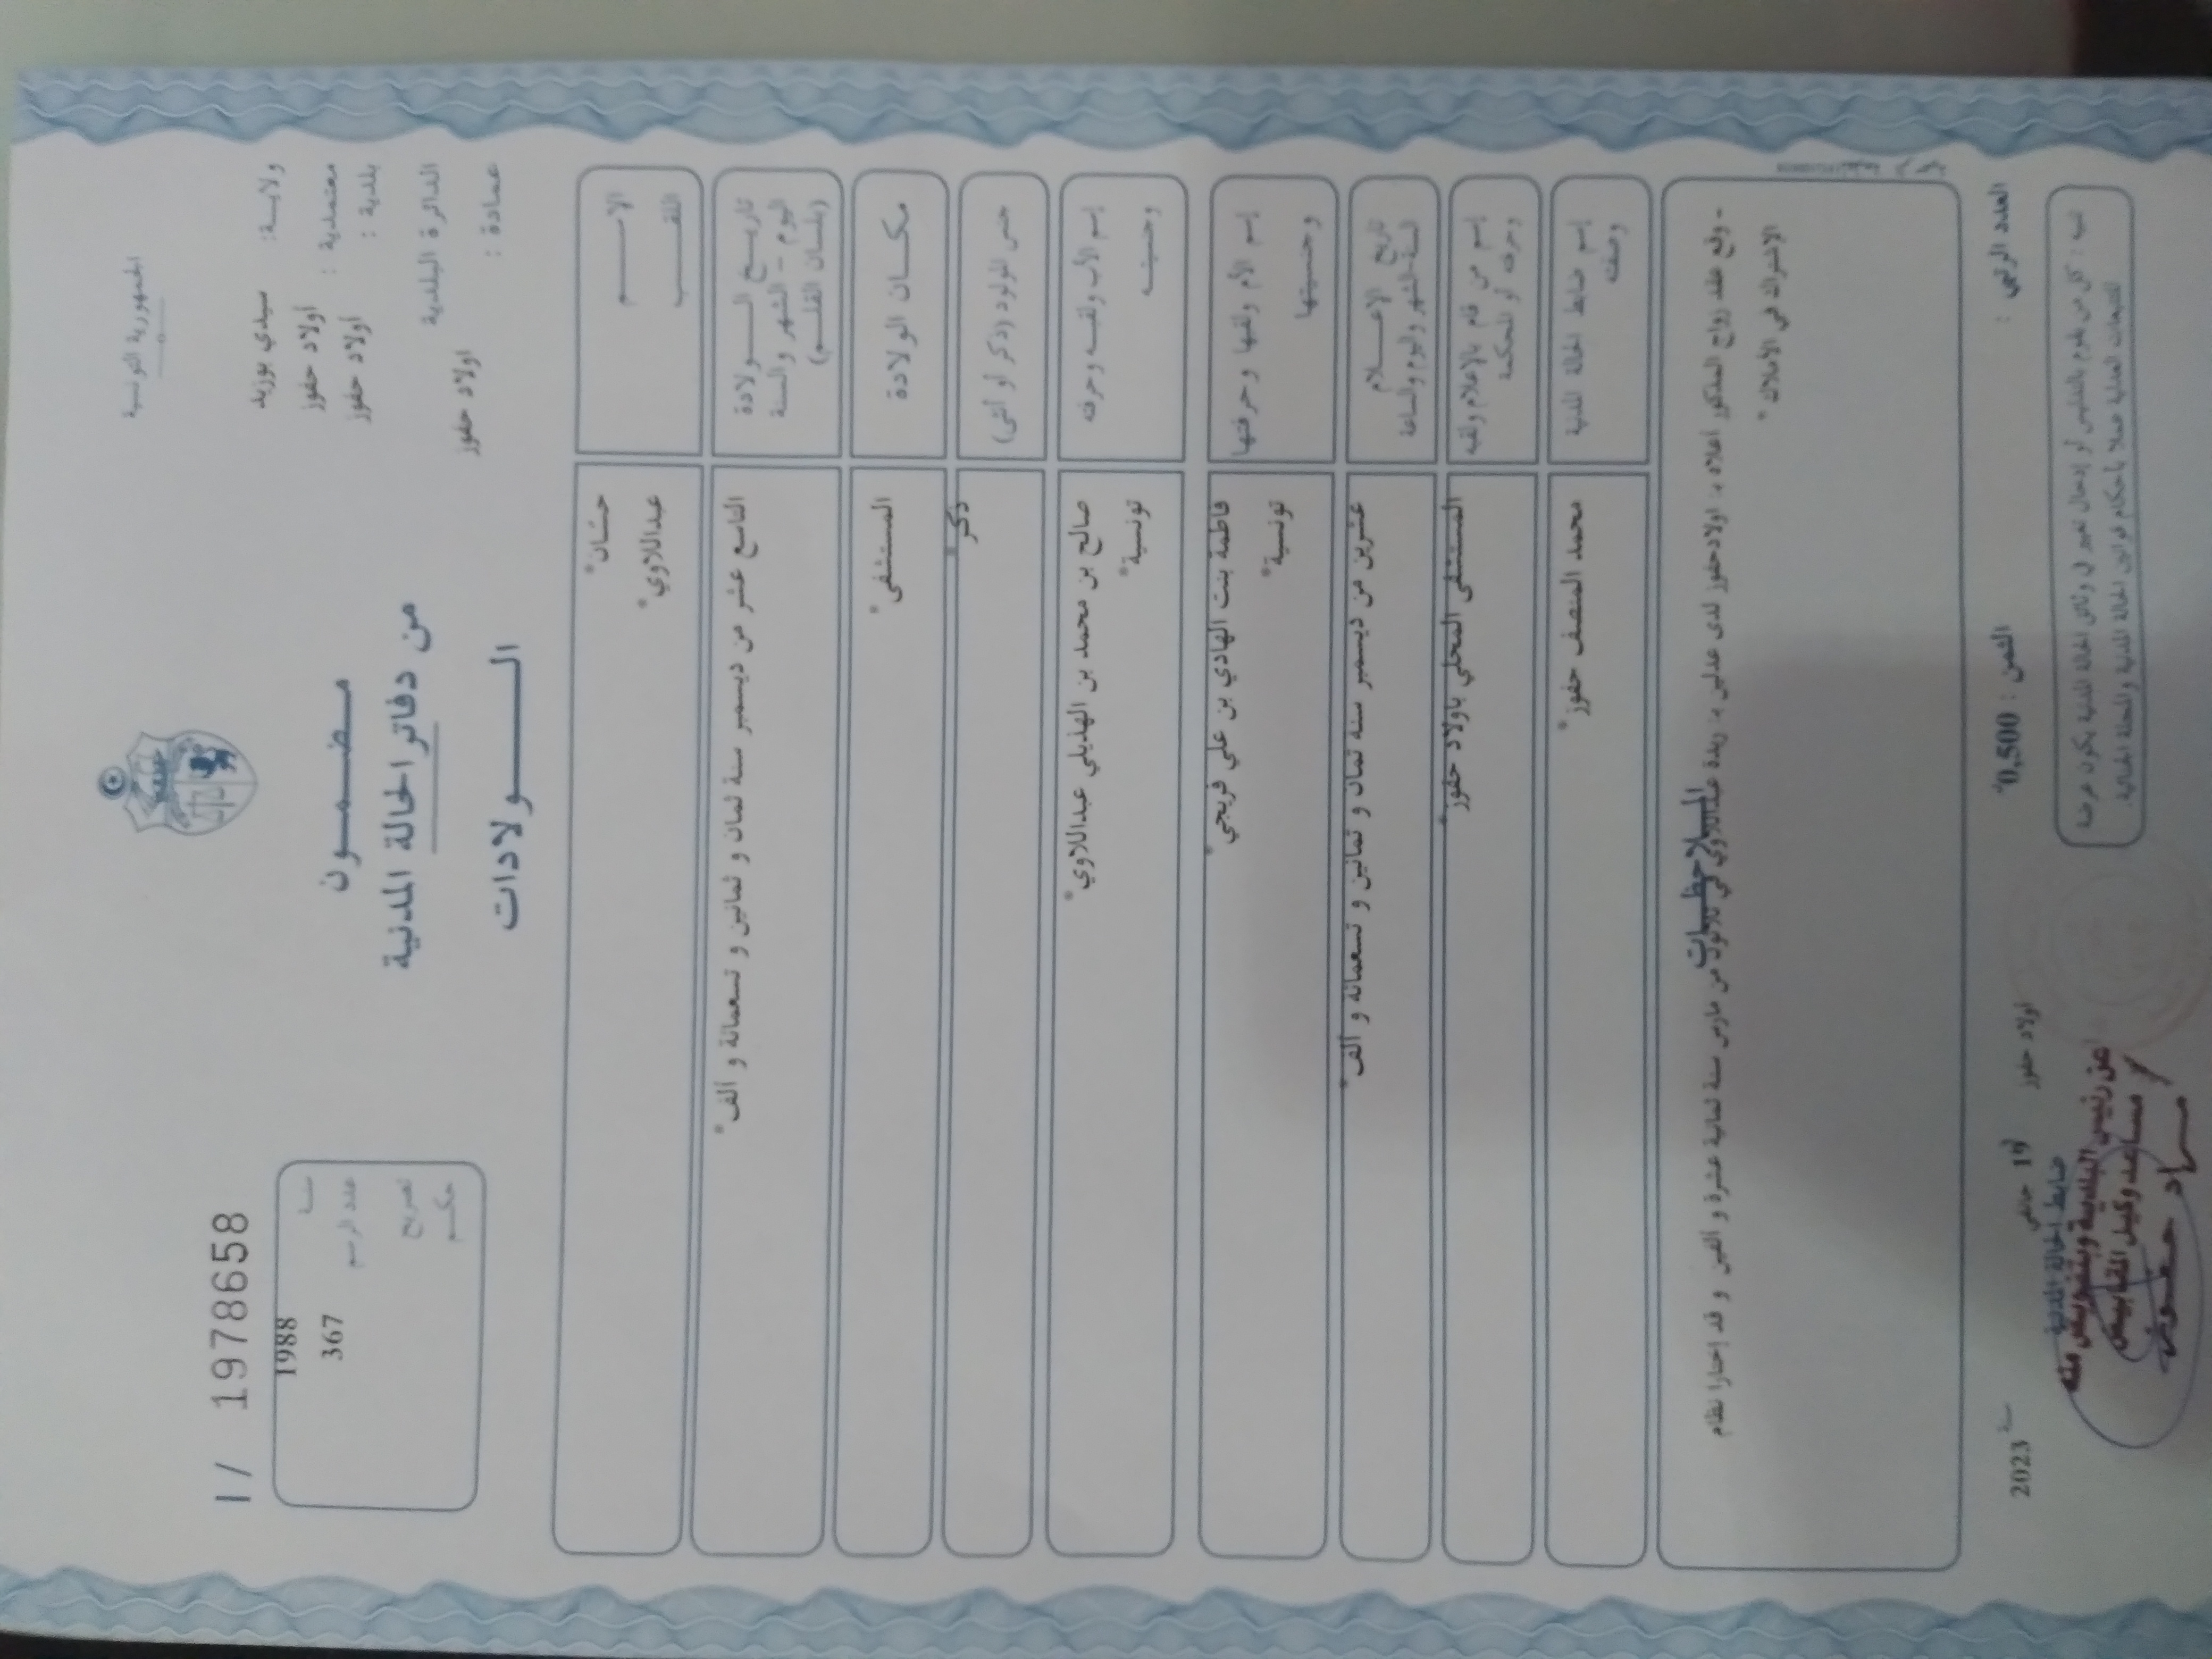 الجمهورية التونسية
ولايـة: سيدي بوزيد
معتمدية : أولاد حفوز
بلدية : أولاد حفوز
الدائرة البلدية
اولاد حفوز
عمادة :
مـضـمـــون
من دفاتر الحالة المدنية
الـــولادات
I / 1978658
سنة 1988
عدد الرسم 367
تصريح
حكـم
الاســـم
حسّان*
اللقـــب
عبداللاوي*
تاريــخ الـــولادة
اليوم – الشهر والسنة
(بلسان القلـم)
التاسع عشر من ديسمبر سنة ثمان و ثمانين و تسعمائة و ألف*
مكــان الولادة
المستشفى*
جنس المولود (ذكر أو أنثى)
ذكر*
إسم الأب ولقبـه وحرفته
صالح بن محمد بن الهذيلي عبداللاوي*
وجنسيتـه
تونسية*
إسم الأم ولقبها وحرفتها
فاطمة بنت الهادي بن علي فريجي*
وجنسيتها
تونسية*
تاريخ الإعـــلام
السنة-الشهر واليوم والساعة
عشرين من ديسمبر سنة ثمان و ثمانين و تسعمائة و ألف*
إسم من قام بالإعلام ولقبه
وحرفته أو المحكمة
المستشفى المحلي باولاد حفوز*
إسم ضابط الحالة المدنية
وصفته
محمد المنصف حفوز*
الملاحظــات
- وقع عقد زواج المذكور أعلاه بـ: اولاد حفوز لدى عدلين بـ: زبيدة عبداللاوي في ثلاثون من مارس سنة ثمانية عشرة و ألفين و قد إختارا نظام
الإشتراك في الأملاك*
العدد الرتبي :
الثمن : 0,500*
أولاد حفوز في 19 جانفي سنة 2023
ضابط الحالة المدنية
عن رئيس البلدية وبتفويض منه
مساعد وكيل المقابيض
تنبيه : كل من يقوم بالتدليس أو إدخال تغيير في وثائق الحالة المدنية يكون عرضة
للتتبعات العدلية عملا بأحكام قوانين الحالة المدنية والمجلة الجنائية.